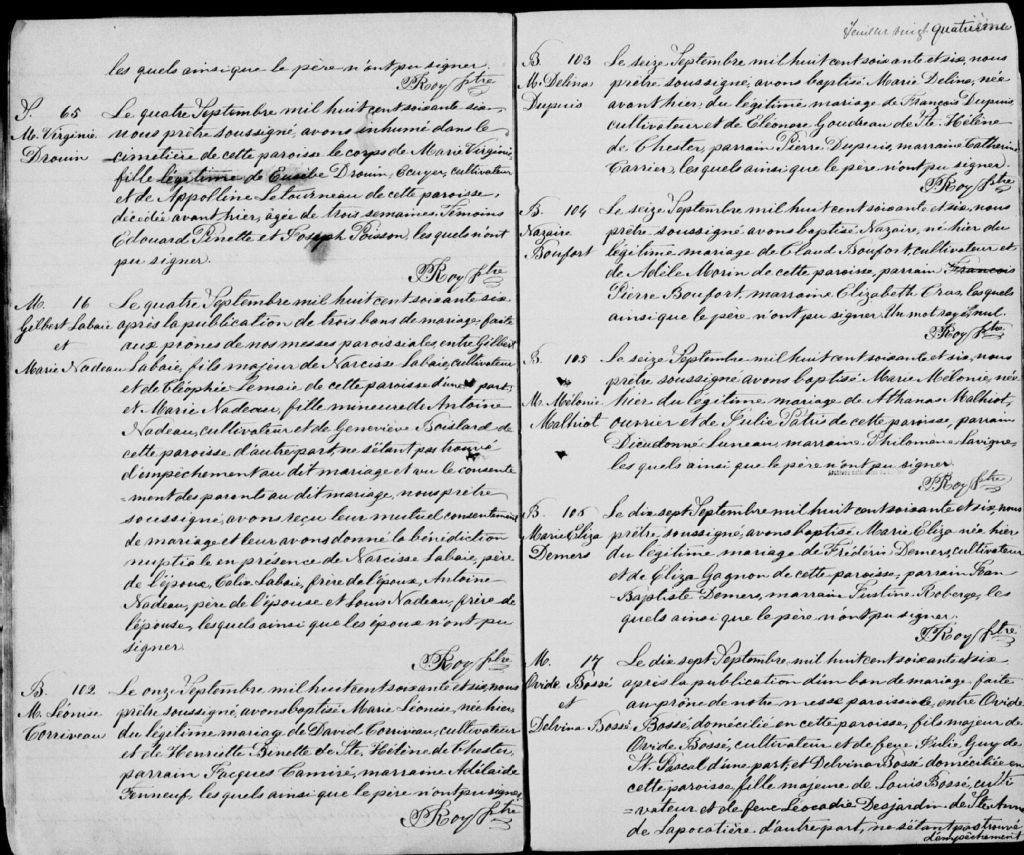 les quels ainsi que le père n'ont pu signer
PRoy ptre
S. 65
M. Virginie
Drouin
Le quatre Septembre mil huit cent soixante six
nous prêtre soussigné, avons inhumé dans le
cimetière de cette paroisse le corps de Marie Virginie,
fille légitime de Eusèbe Drouin, Ecuyer, cultivateur
et de Appolline Letourneau de cette paroisse
décédée avant hier, agée de trois semaines. Témoins
Edouard Pinette et Joseph Poisson, les quels n'ont
pu signer.
PRoy ptre
M. 16
Gilbert Labaie
et
Marie Nadeau
Le quatre Septembre mil huit cent soixante six
après la publication de trois bans de mariage faite
aux prônes de nos messes paroissiales, entre Gilbert
Labaie, fils majeur de Narcisse Labaie, cultivateur
et de Cléophie Lemaie de cette paroisse d'une part,
et Marie Nadeau, fille mineure de Antoine
Nadeau, cultivateur et de Geneviève Boislard de
cette paroisse d'autre part, ne s'étant pas trouvé
d'empèchement au dit mariage et vu le consente
-ment des parents au dit mariage, nous prêtre
soussigné, avons reçu leur mutuel consentement
de mariage et leur avons donné la bénédiction
nuptiale en présence de Narcisse Labaie, père
de l'époux, Labaie, frère de l'époux, Antoine
Nadeau, père de l'épouse et Louis Nadeau, frère de
l'épouse, lesquels ainsi que les epoux n'ont pu
signer
PRoy ptre
B. 102
M. Léonise
Corriveau
Le onze Septembre mil huit cent soixante et six, nous
prêtre soussigné, avons baptisé Marie Léonise, née hier
du légitime mariage de David Corriveau, cultivateur
et de Henriette Binette de Ste. Hélène de Chester,
parrain Jacques Camiré, marraine Adélaide
Fenneuf, les quels ainsi que le père n'ont pu signer
PRoy ptre
feuillet vingt quatrième
B. 103
M. Delina
Dupuis
Le seize Septembre mil huit cent soixante et six, nous
prêtre soussigné, avons baptisé Marie Delina, née
avant hier, du légitime mariage de François Dupuis,
cultivateur et de Eléonose Goudreau de Ste. Hélène
de Chester, parrain Pierre Dupuis, marraine Catherine
Carrier, les quels ainsi que le père n'ont pu signer.
PRoy ptre
B. 104
Nazaire
Boufort
Le seize Septembre mil huit cent soixante et six, nous
prêtre soussigné avons baptisé Nazaire, né hier du
légitime mariage de Claud Boufort, cultivateur et
de Adèle Morin de cette paroisse, parrain François
Pierre Boufort, marraine Elizabeth Cras, les quels
ainsi que le père n'ont pu signer. Un mot rayé nul.
PRoy ptre
B. 105
M. Mélonie
Malhiot
Le seize Septembre mil huit cent soixante et six, nous
prêtre soussigné avons baptisé Marie Mélonie, née
hier du légitime mariage de Athanas Malhiot,
ouvrier et de Julie Pâtris de cette paroisse, parrain
Dieudonné Luneau, marraine Philomène Lavigne,
les quels ainsi que le père n'ont pu signer
PRoy ptre
B. 106
Marie Eliza
Demers
Le dix sept Septembre mil huit cent soixante et six, nous
prêtre soussigné, avons baptisé Marie Eliza née hier
du légitime mariage de Fréderic Demers, cultivateur
et de Eliza Gagnon de cette paroisse, parrain Jean
-Baptiste Demers, marraine Justine Roberge, les
quels ainsi que le père n'ont pu signer.
PRoy ptre
M. 17
Ovide Bossé
et
Delvina Bossé
Le dix sept Septembre, mil huit cent soixante et six
après la publication d'un ban de mariage faite
au prône de notre messe paroissiale, entre Ovide
Bossé, domicilié en cette paroisse, fils majeur de
Ovide Bossé, cultivateur et de feue Julie Guy de
St. Pascal d'une part, et Delvina Bossé domiciliée en
cette paroisse, fille majeure de Louis Bossé, culti
=vateur et de feue Léocadie Desjardin de Ste Anne
de Lapocatière d'autre part, ne s'étant pas trouvé
d'empèchement